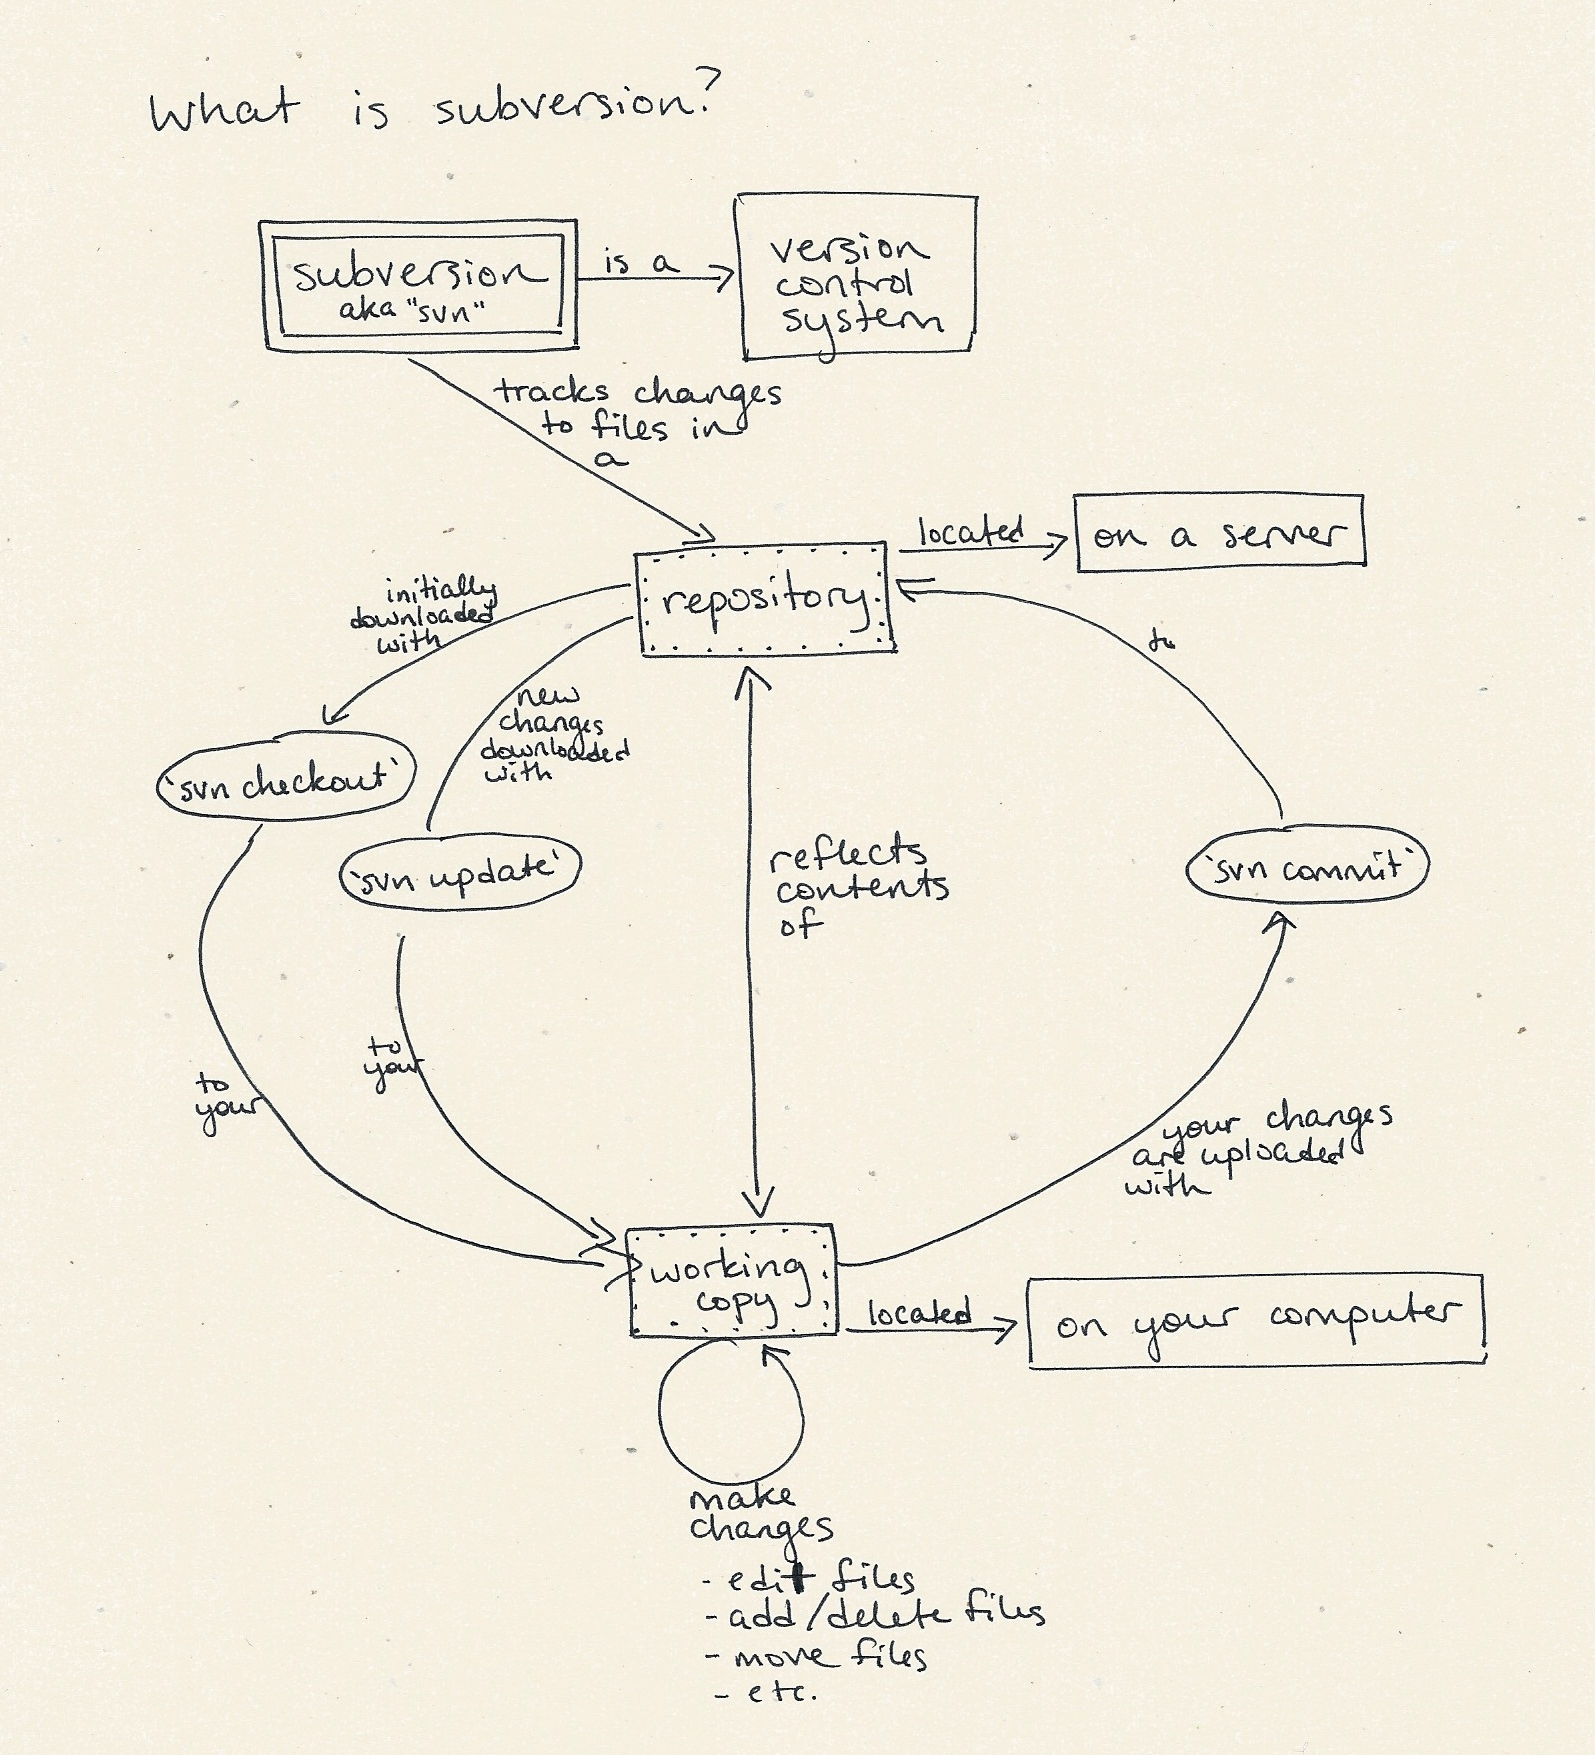 What is subversion?
subversion
aka "svn"
is a
version
control
system
tracks changes
to files in
a
repository
located
on a server
initially
downloaded
with
new
changes
downloaded
with
to
`svn checkout`
`svn update`
reflects
contents
of
`svn commit`
to
your
to
your
your changes
are uploaded
with
working
copy
located
on your computer
make
changes
- edit files
- add/delete files
- move files
- etc.